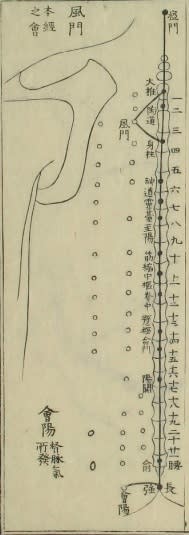 風門
本經
之會
瘂門
大推
陶道
風門
身柱
神道
靈臺
至陽
筋縮
中樞
脊中
懸樞
命門
陽關
俞
長
強
會陽
一
二
三
四
五
六
七
八
九
十
十一
十二
十三
十四
十五
十六
十七
十八
十九
二十
廿一
會陽
督脉氣
所發